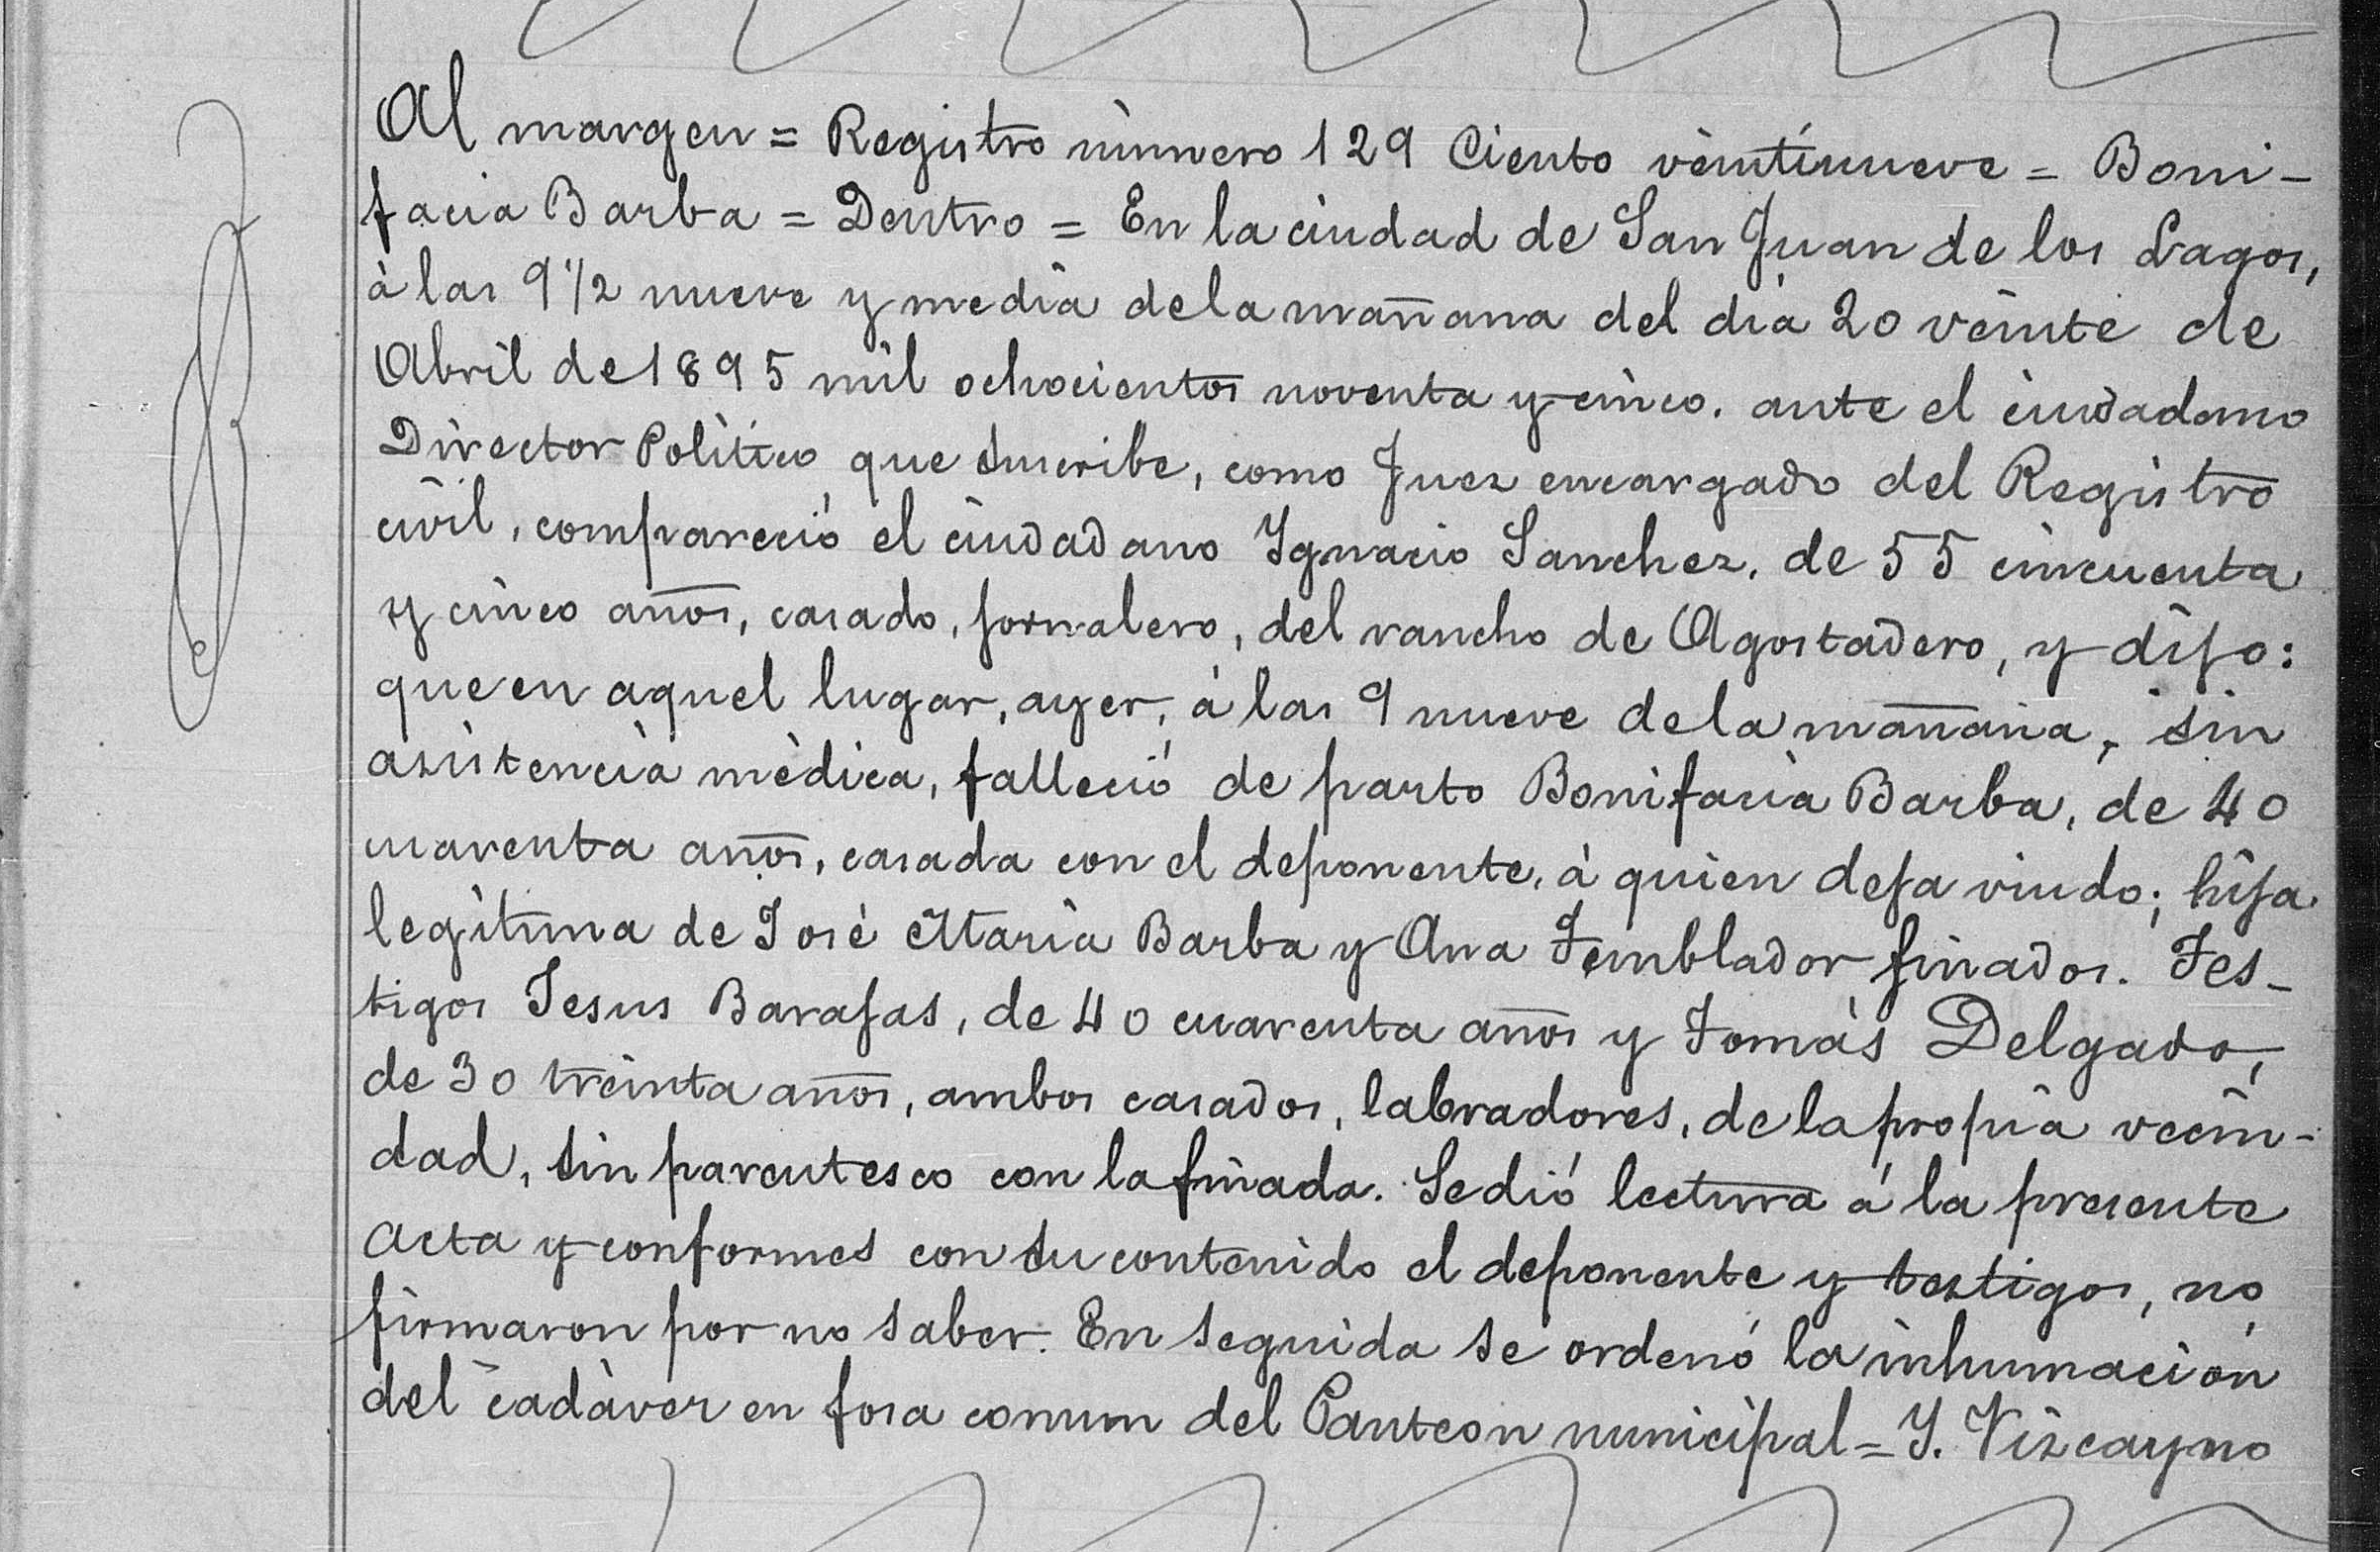 Al margen = Registro número 129 Ciento veintinueve = Boni-
facia Barba = Dentro = En la ciudad de San Juan de los Lagos,
à las 9 1/2 nueve y media de la mañana del dia 20 veinte de
Abril de 1895 mil ochocientos noventa y cinco. ante el ciudadano
Director Político que suscribe, como Juez encargado del Registro
civil, compareció el ciudadano Ygnacio Sanchez, de 55 cincuenta
y cinco años, casado, jornalero, del rancho de Agostadero, y dijo:
que en aquel lugar, ayer, à las 9 nueve de la mañana, sin
asistencia mèdica, falleció de parto Bonifacia Barba, de 40
cuarenta años, casada con el deponente, à quien deja viudo; hija
legítima de José Maria Barba y Ana Temblador finados. Tes-
tigos Jesus Barajas, de 40 cuarenta años y Tomàs Delgado,
de 30 treinta años, ambos casados, labradores, de la propia vecin-
dad, sin parentesco con la finada. Se dió lectura á la presente
acta y conformes con su contenido el deponente y testigos, no
firmaron por no saber. En seguida se ordenó la inhumación
del cadàver en fosa comun del Panteon municipal = Y. Vizcayno